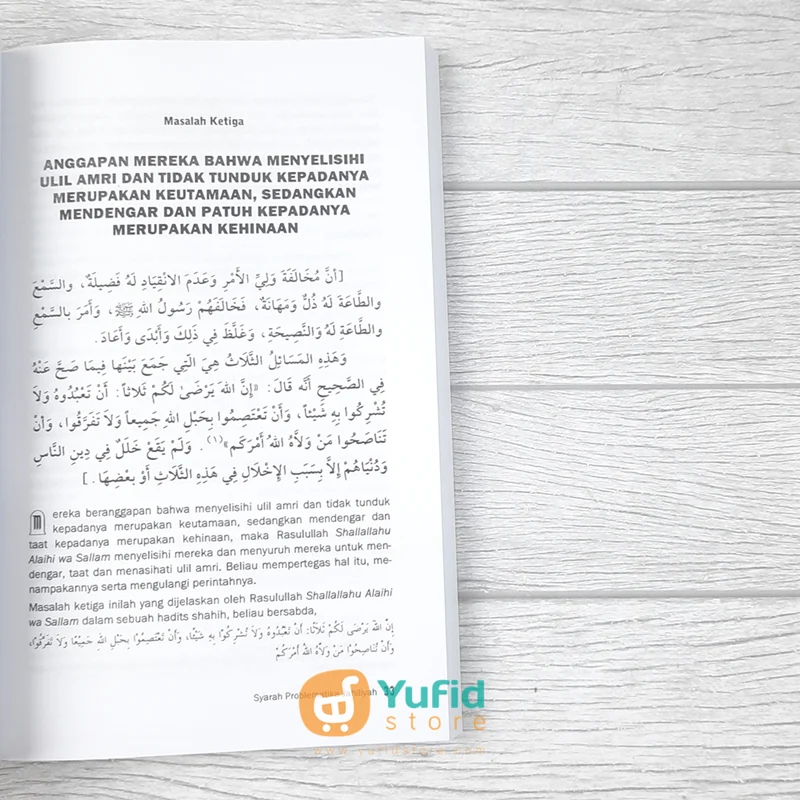 Masalah Ketiga
ANGGAPAN MEREKA BAHWA MENYELISIHI
ULIL AMRI DAN TIDAK TUNDUK KEPADANYA
MERUPAKAN KEUTAMAAN, SEDANGKAN
MENDENGAR DAN PATUH KEPADANYA
MERUPAKAN KEHINAAN
[أَنَّ مُخَالَفَةَ وَلِيِّ الأَمْرِ وَعَدَمَ الانْقِيَادِ لَهُ فَضِيلَةٌ، والسَّمْعَ
والطَّاعَةَ لَهُ ذُلٌّ وَمَهَانَةٌ، فَخَالَفَهُمْ رَسُولُ اللهِ ﷺ، وَأَمَرَ بالسَّمْعِ
والطَّاعَةِ لَهُ وَالنَّصِيحَةِ، وَغَلَّظَ فِي ذَلِكَ وَأَبْدَى وَأَعَادَ.
وَهَذِهِ المَسَائِلُ الثَّلاَثُ هِيَ الَّتِي جَمَعَ بَيْنَها فِيمَا صَحَّ عَنْهُ
فِي الصَّحِيحِ أَنَّه قَالَ: «إِنَّ اللهَ يَرْضَىٰ لَكُمْ ثَلاثاً: أَنْ تَعْبُدُوهُ وَلاَ
تُشْرِكُوا بِهِ شَيْئاً، وَأَنْ تَعْتَصِمُوا بِحَبْلِ اللهِ جَمِيعاً وَلاَ تَفَرَّقُوا، وَأَنْ
تَنَاصَحُوا مَنْ وَلاَّهُ اللهُ أَمْرَكُم»(١). وَلَمْ يَقَعْ خَلَلٌ فِي دِينِ النَّاسِ
وَدُنْيَاهُمْ إِلاَّ بِسَبَبِ الإِخْلاَلِ فِي هَذِهِ الثَّلاَثِ أَوْ بَعْضِهَا.]
Mereka beranggapan bahwa menyelisihi ulil amri dan tidak tunduk
kepadanya merupakan keutamaan, sedangkan mendengar dan
taat kepadanya merupakan kehinaan, maka Rasulullah Shallallahu
Alaihi wa Sallam menyelisihi mereka dan menyuruh mereka untuk men-
dengar, taat dan menasihati ulil amri. Beliau mempertegas hal itu, me-
nampakannya serta mengulangi perintahnya.
Masalah ketiga inilah yang dijelaskan oleh Rasulullah Shallallahu Alaihi
wa Sallam dalam sebuah hadits shahih, beliau bersabda,
إِنَّ اللهَ يَرْضَى لَكُمْ ثَلاَثًا: أَنْ تَعْبُدُوهُ وَلاَ تُشْرِكُوا بِهِ شَيْئًا، وَأَنْ تَعْتَصِمُوا بِحَبْلِ اللهِ جَمِيعًا وَلاَ تَفَرَّقُوا،
وَأَنْ تُنَاصِحُوا مَنْ وَلاَّهُ اللهُ أَمْرَكُمْ
Syarah Problematika Jahiliyah 33
Yufid
store
www.yufidstore.com